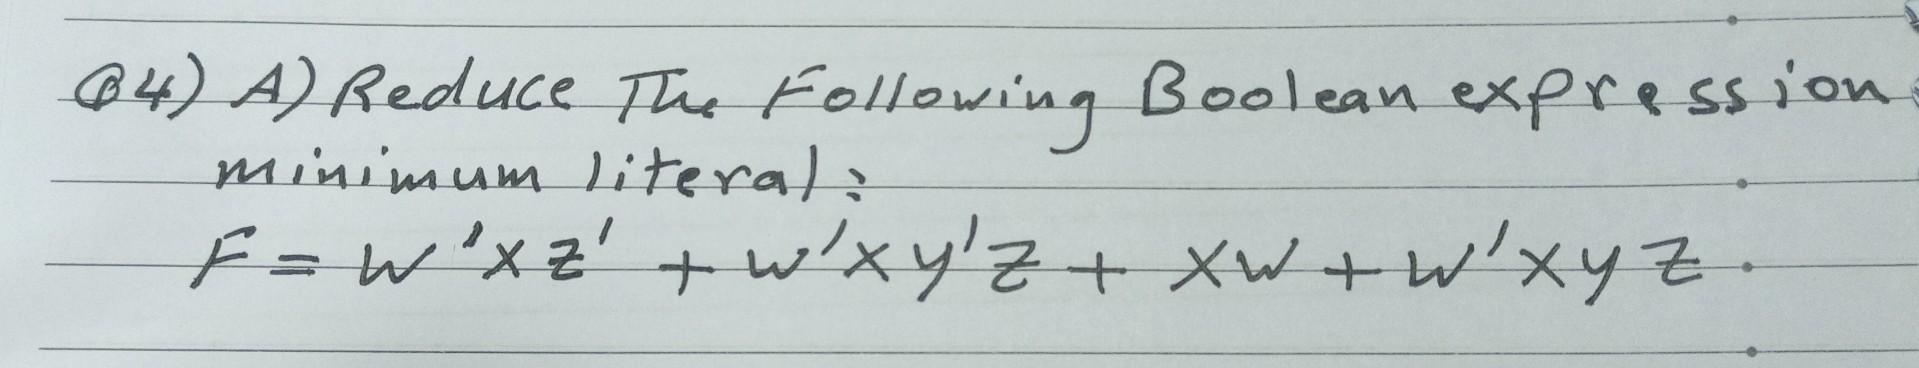 Q4) A) Reduce The Following Boolean expression
minimum literal:
F = w'xz' + w'xy'z + xw + w'xyz.